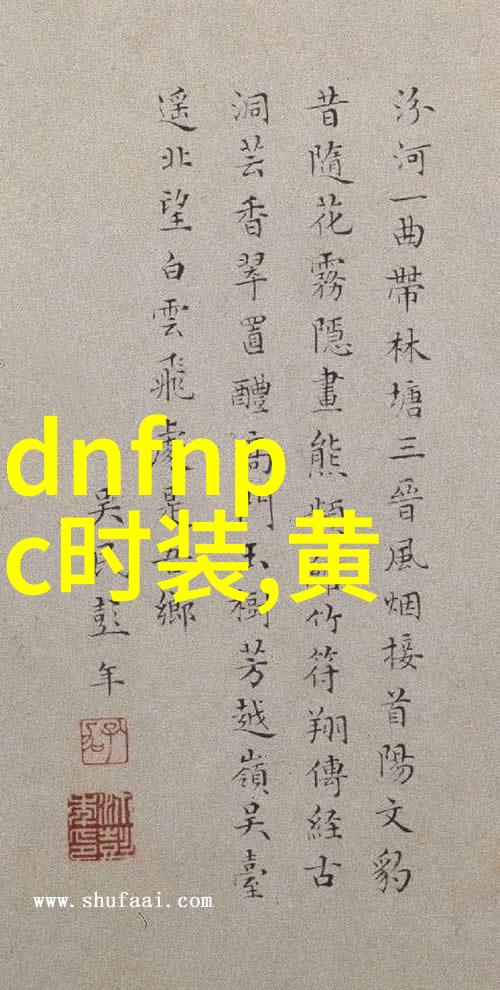 汾河一曲帶林塘三晉風烟接首陽文豹
昔隨花霧隱畫熊竹符翔傳經古
洞芸香翠置醴門樹芳越嶺吳臺
遥北望白雲飛處是吾鄉
吳民彭年
dnfnp
c时装,黄
www.shufaai.com